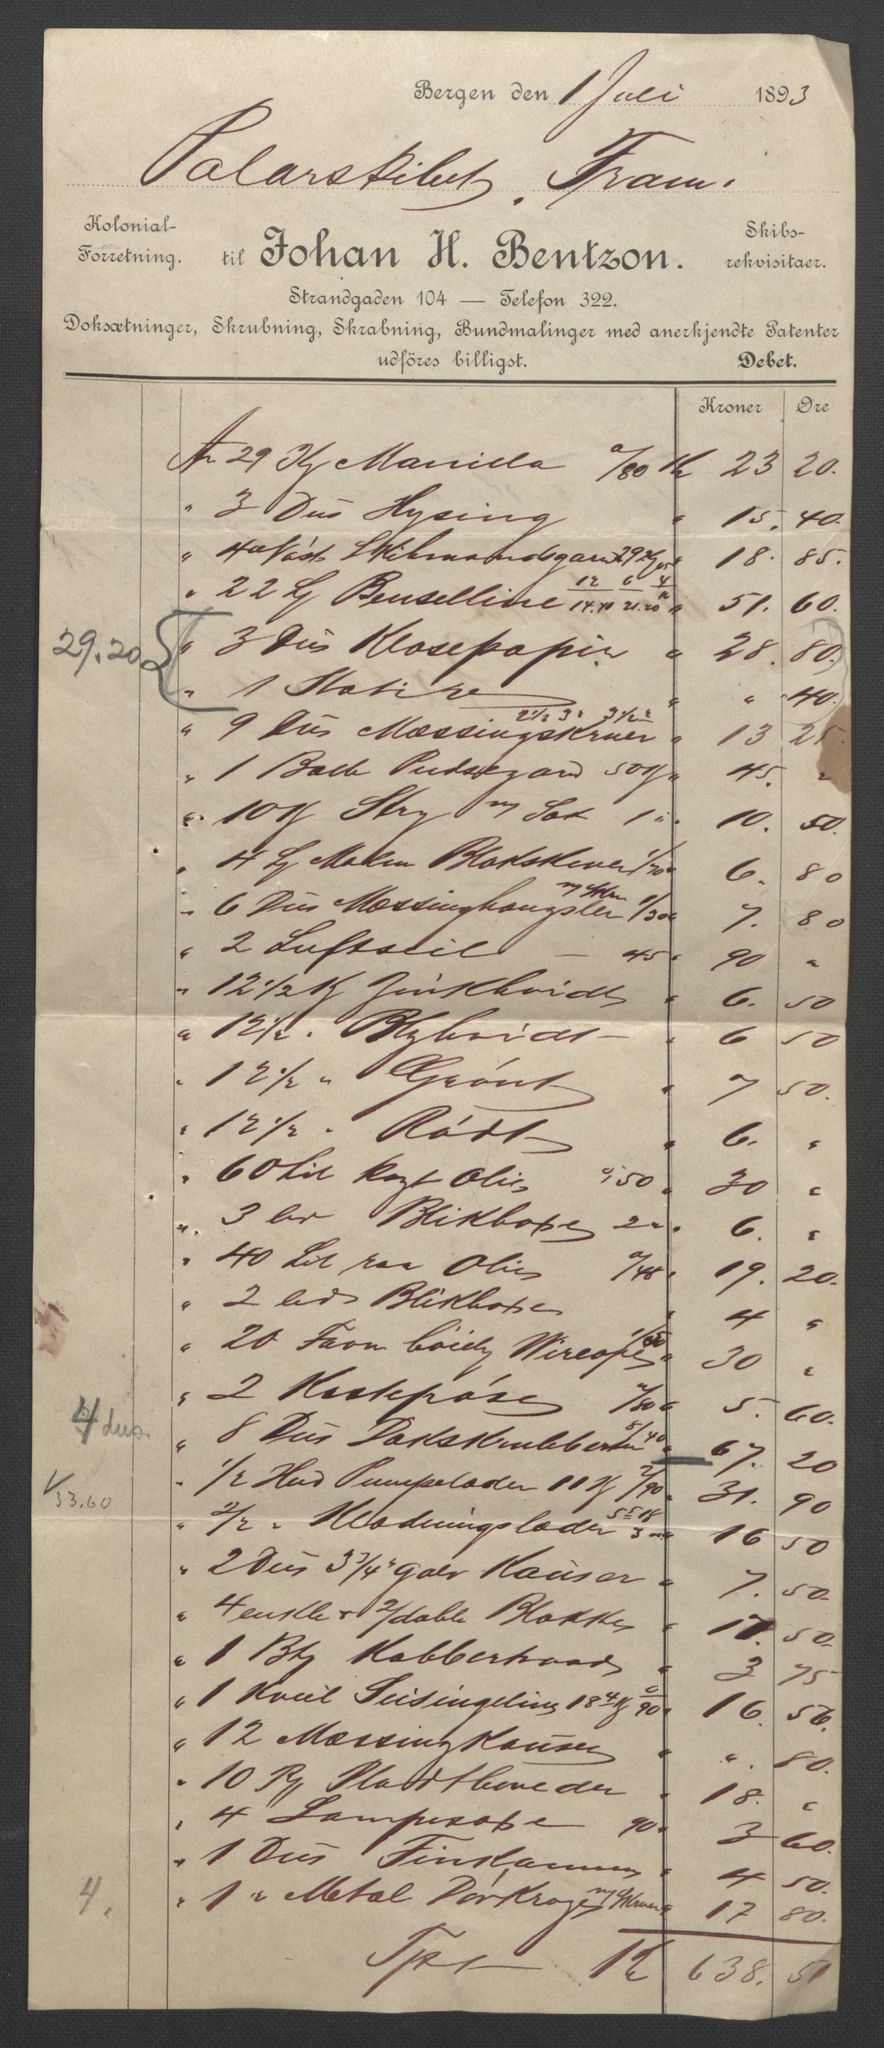 Bergen den 1 Juli 1893
Polarskibet "Fram"
Kolonial-Forretning.
til Johan H. Bentzon.
Skibs-rekvisitaer.
Strandgaden 104 — Telefon 322.
Doksætninger, Skrubning, Skrabning, Bundmalinger med anerkjendte Patenter
udföres billigst. Debet.
Kroner Øre
An 29 Kg Manilla a/80 Kr 23 20.
" 3 Dus Hysing " 15. 40.
" 4 Skibmandsgarn 29 Kg " 18. 85.
" 22 Benselline 12 6 4 14.40 21.20 " 51. 60.
29.20 " 3 Dus Klosepapir " 28. 80.
" 1 " " 40.
" 9 Dus Messingskruer 2 1/2 3 3 1/2 " 13 25.
" 1 Balle Pudsegarn 50 Kg " 45. "
" 10 Kg Stry 1 " " 10. 50.
" 4 Blokskiver 1/70 " 6. 80
" 6 Dus Messinghængsler m/ Skr 1/30 " 7. 80
" 2 Luftseil — 45 " 90 "
" 12 1/2 Kg Zinkhvidt " 6. 50
" 12 1/2 " Blyhvidt " 6 50
" 12 1/2 " Grönt " 7 50.
" 12 1/2 " Rödt " 6. "
" 60 Lit kogt Olie a/50 " 30 "
" 3 Blikbokse 2 " " 6. "
" 40 Lit raa Olie a/48 " 19. 20.
" 2 Blikbokse " 4 "
" 20 Favn böielig Wirerope 1/50 " 30 "
" 2 Kostepöse " 5. 60.
4 dus. " 8 Dus Dækskrubber 8/40 " 67. 20
33.60 " 1/2 Hud Pumpelæder 11 Kg 2/90 " 31. 90
" 2/2 " Klædningslæder " 16 50
" 2 Dus 3 3/4" galv Kauser " 7. 50.
" 4 enkle + 2/dable Blokke " 17. 50.
" 1 Kobbertraad " 3 75
" 1 Kveil Seisingline 18 4 Kg /90 " 16. 56.
" 12 Messing Kauser " ". 80.
" 10 " 18. "
" 4 90 " 3 60.
" 1 Dus " 4 50.
4. " 1 " Metal Dörkroge m/ Skruer " 17 80.
Kr 638. 51